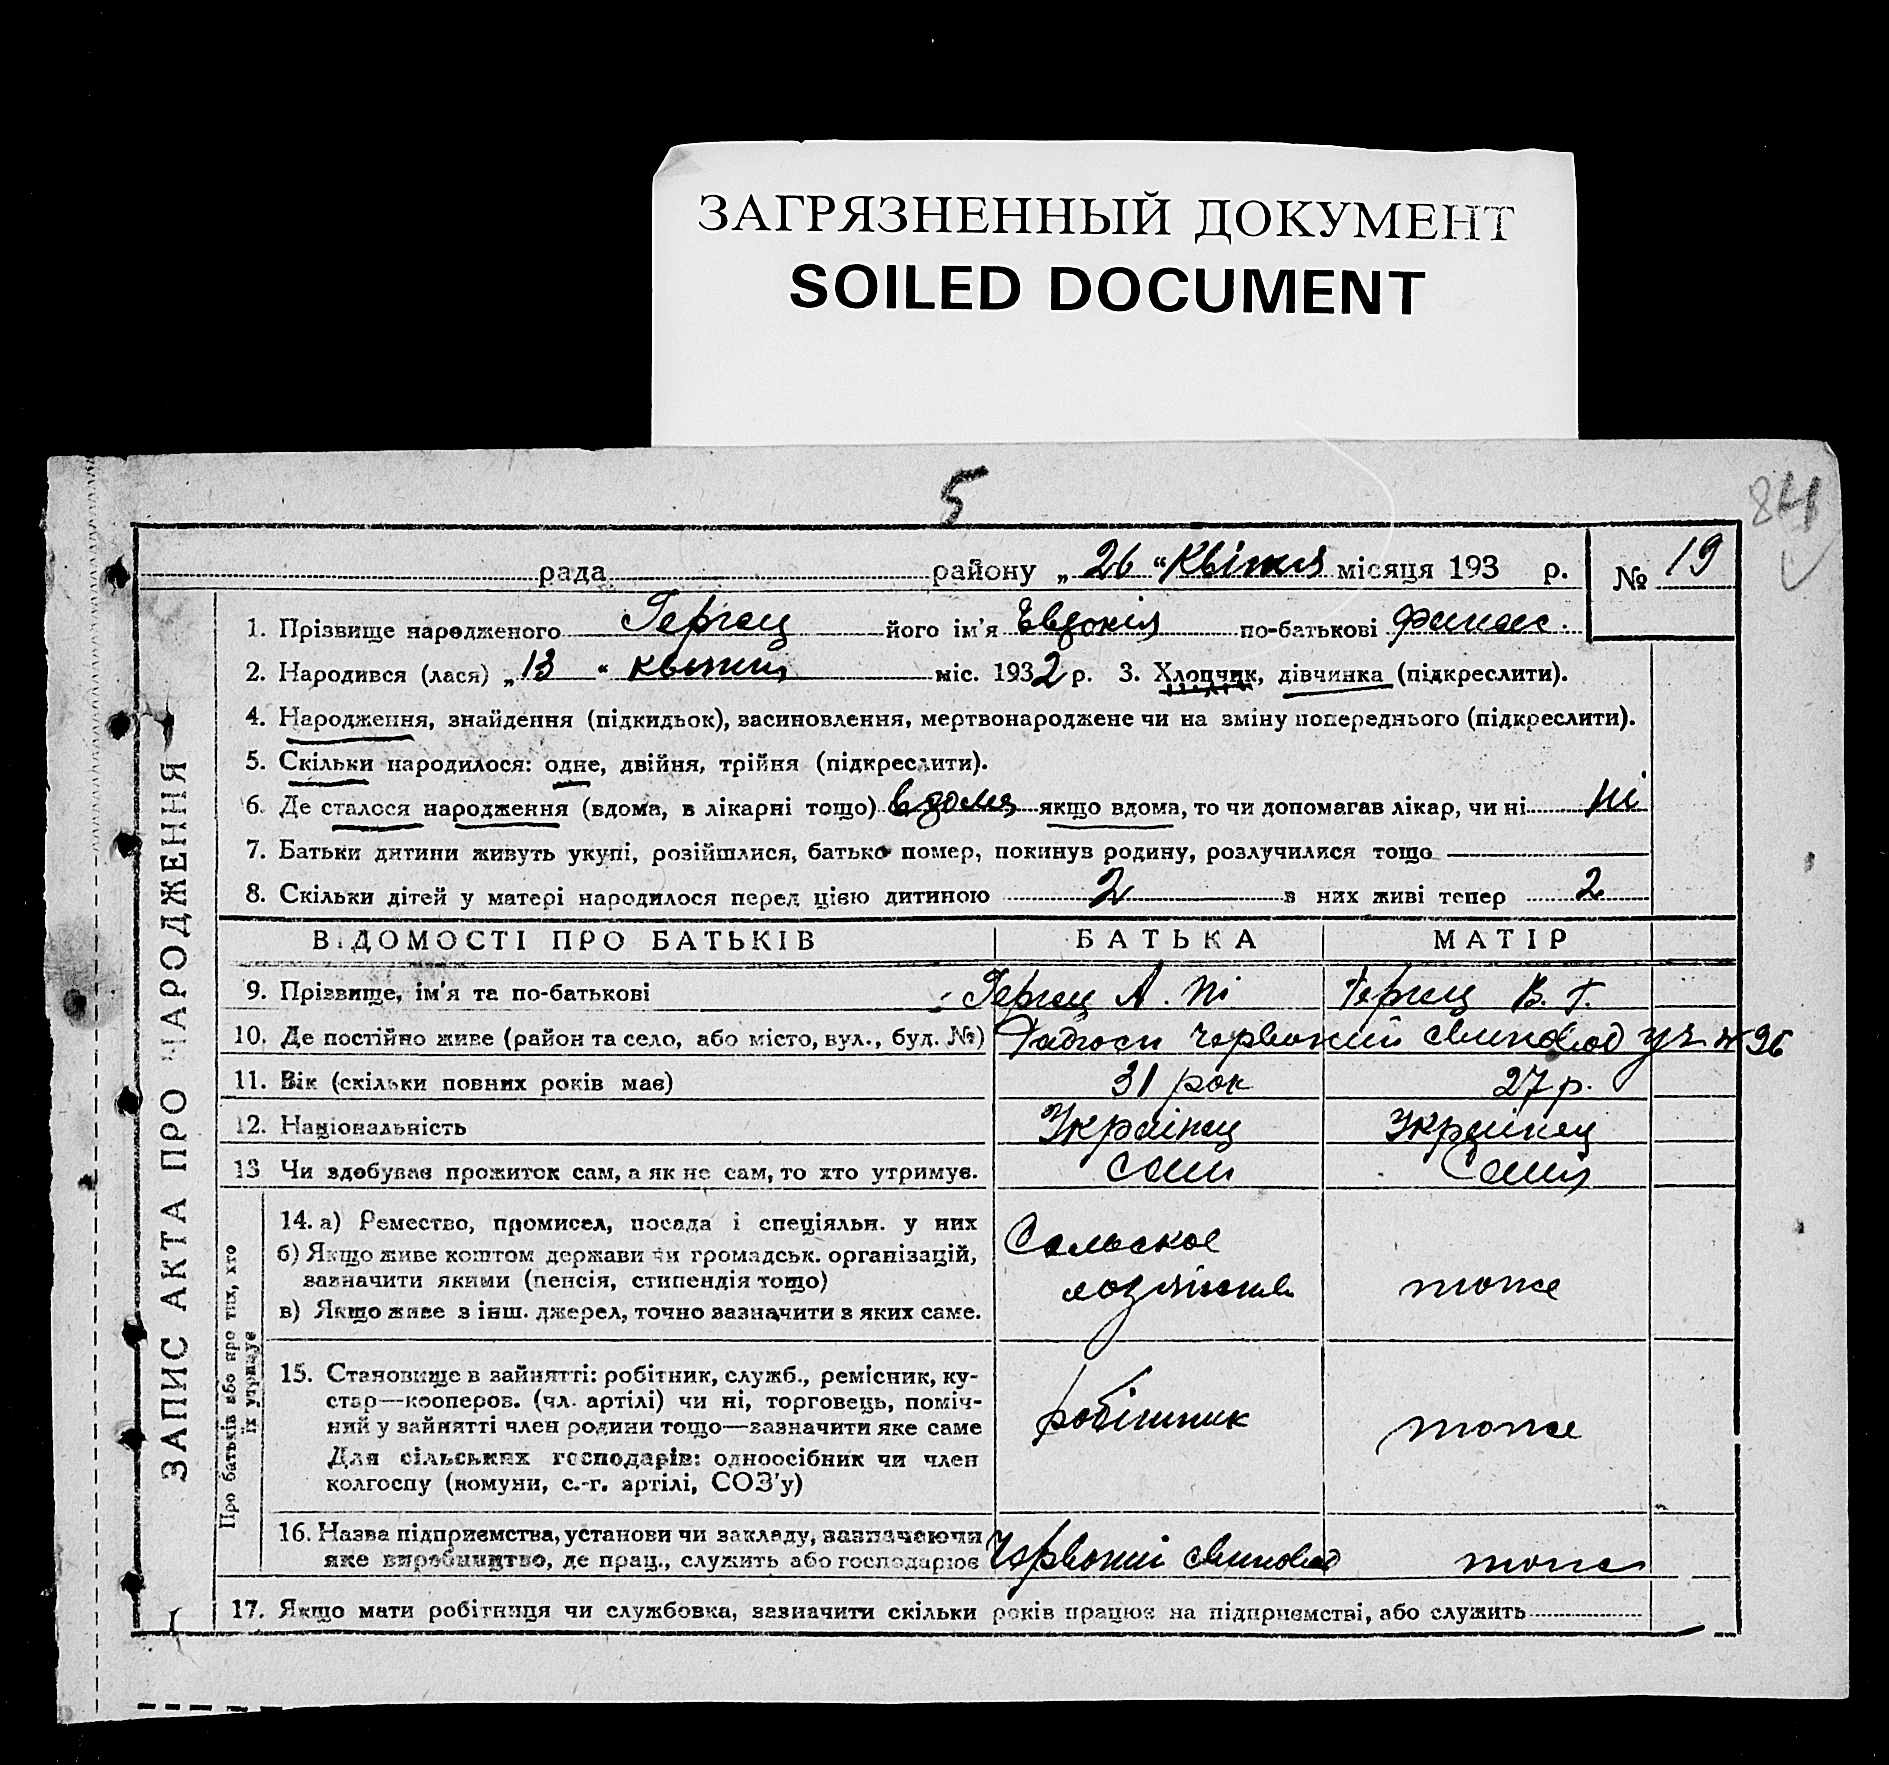 ЗАГРЯЗНЕННЫЙ ДОКУМЕНТ
SOILED DOCUMENT
5
84
рада району „ 26 “ Квітня місяця 193 р. № 19
1. Прізвище народженого Гергец його ім'я Евдокія по-батькові
2. Народився (лася) „ 13 “ квітня міс. 1932 р. 3. Хлопчик, дівчинка (підкреслити).
4. Народження, знайдення (підкидьок), засиновлення, мертвонароджене чи на зміну попереднього (підкреслити).
5. Скільки народилося: одне, двійня, трійня (підкреслити).
6. Де сталося народження (вдома, в лікарні тощо) вдома якщо вдома, то чи допомагав лікар, чи ні ні
7. Батьки дитини живуть укупі, розійшлися, батько помер, покинув родину, розлучилися тощо
8. Скільки дітей у матері народилося перед цією дитиною 2 з них живі тепер 2
ВІДОМОСТІ ПРО БАТЬКІВ БАТЬКА МАТІР
9. Прізвище, ім'я та по-батькові Гергец А. Гергец В. Г.
10. Де постійно живе (район та село, або місто, вул., буд. №) Радгосп Червоний свиновод уч № 96
11. Вік (скільки повних років має) 31 рок 27 р.
12. Національність Українец Українец
13 Чи здобував прожиток сам, а як не сам, то хто утримує. сам сама
14. а) Ремество, промисел, посада і спеціяльн. у них
б) Якщо живе коштом держави чи громадськ. організацій,
зазначити якими (пенсія, стипендія тощо)
в) Якщо живе з інш. джерел, точно зазначити з яких саме.
Сельское
тоже
15. Становище в зайнятті: робітник, служб., ремісник, ку-
стар—кооперов. (чл. артілі) чи ні, торговець, поміч-
ний у зайнятті член родини тощо—зазначити яке саме
Для сільських господарів: одноосібник чи член
колгоспу (комуни, с.-г. артілі, СОЗ'у)
робітник тоже
16. Назва підприємства, установи чи закладу, зазначаючи
яке виробництво, де прац., служить або господарює
Червоний свиновод тоже
17. Якщо мати робітниця чи службовка, зазначити скільки років працює на підприємстві, або служить
ЗАПИС АКТА ПРО НАРОДЖЕННЯ
Про батьків або про тих, хто
їх утримує